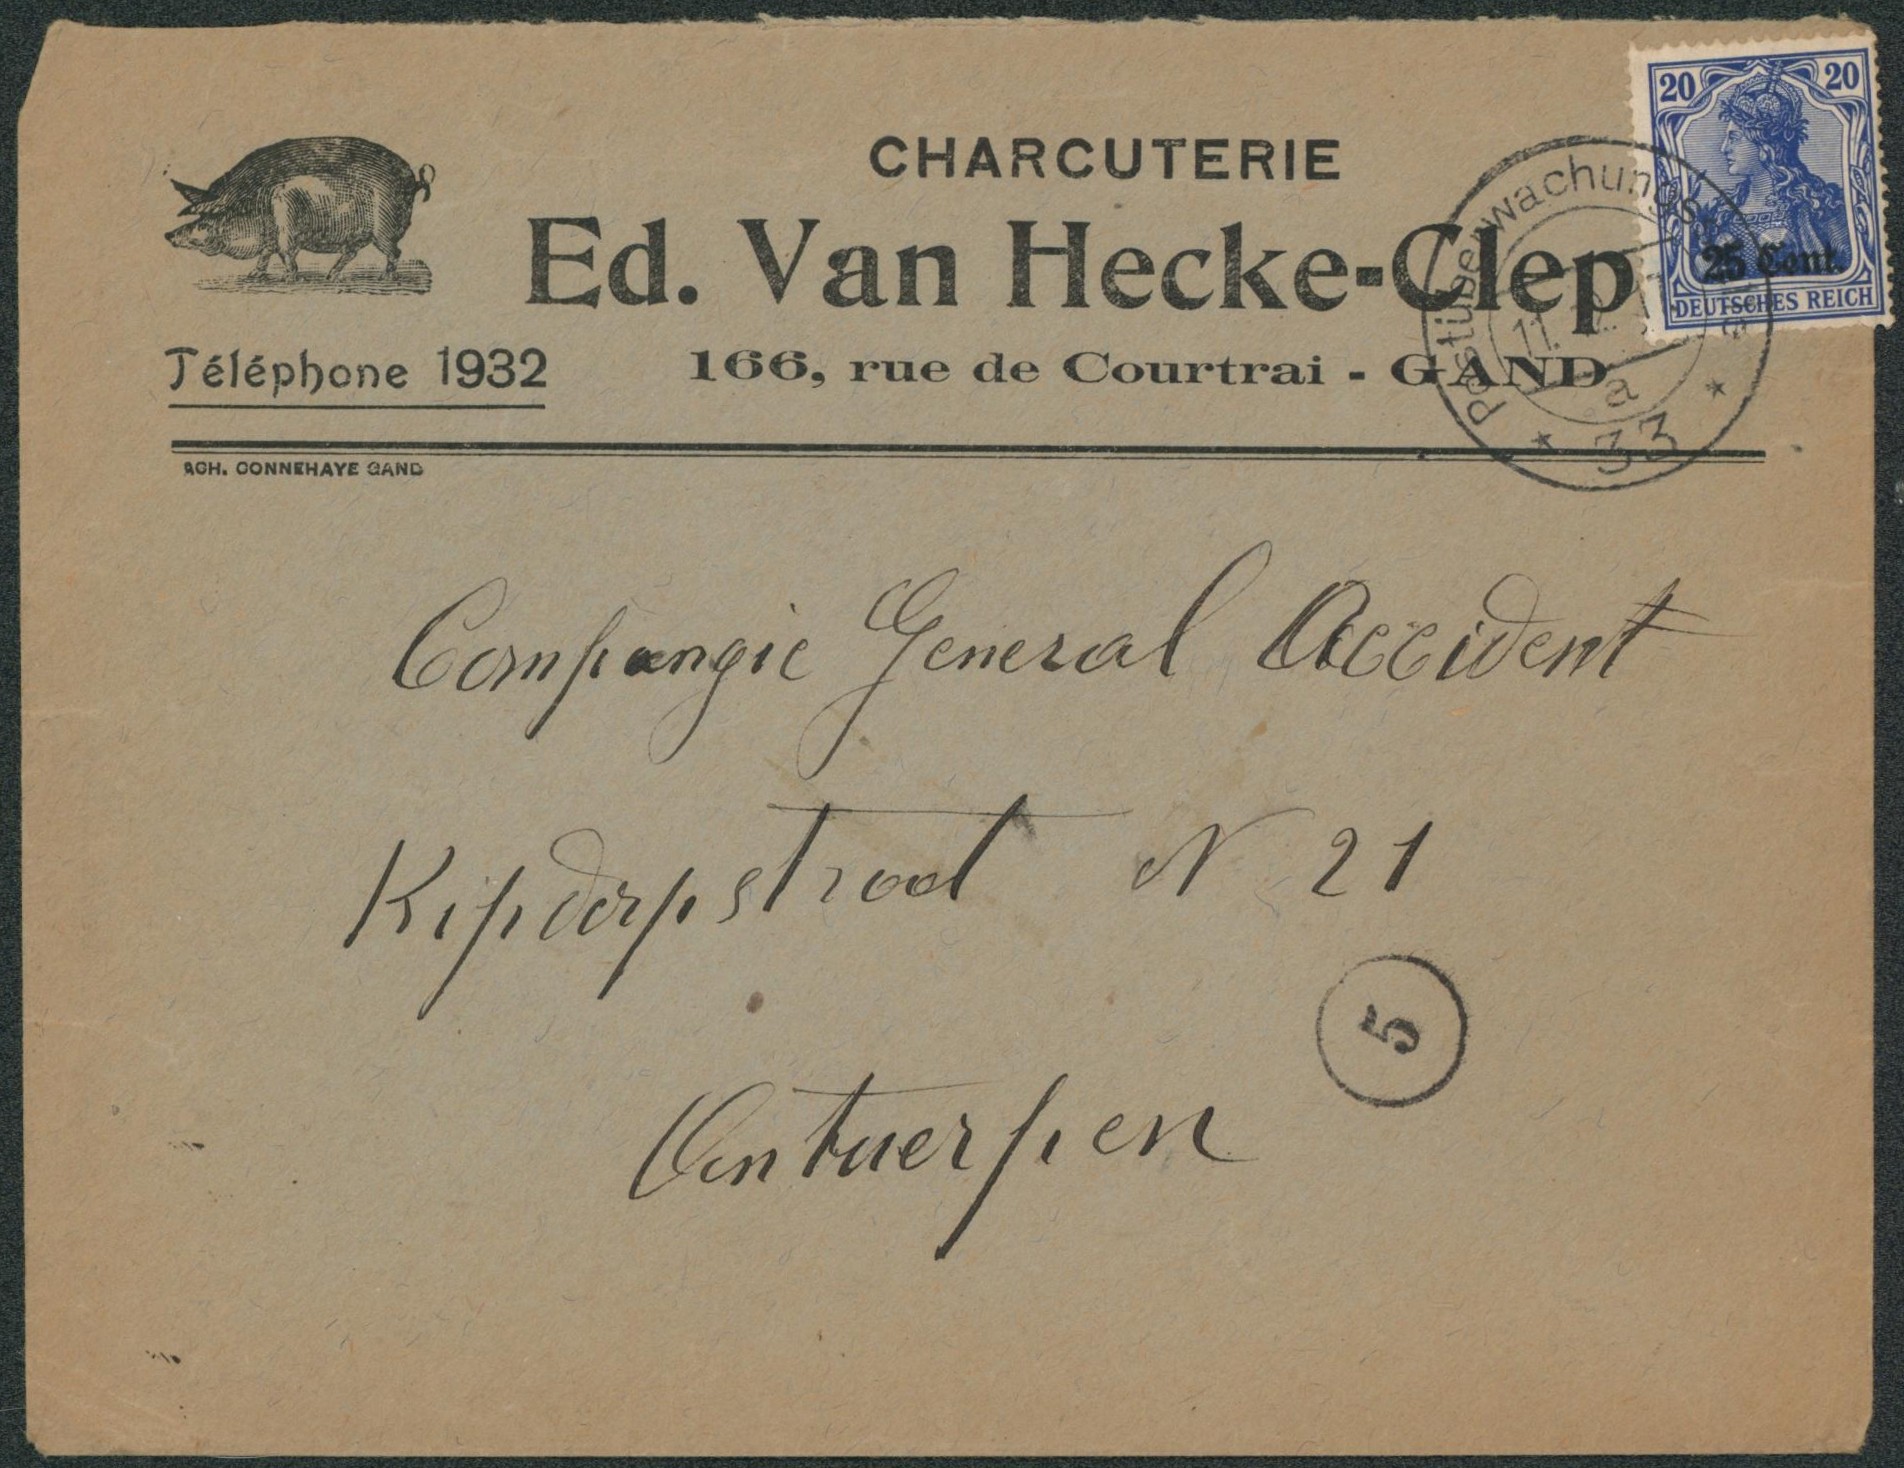 CHARCUTERIE
Ed. Van Hecke-Clep
Téléphone 1932
166, rue de Courtrai - GAND
ACH. CONNEHAYE GAND
20 20
25 Cent.
DEUTSCHES REICH
Postüberwachungs
11.
a
* 33 *
Compangie General Accident
Kipdorpstraat N 21
5
Antwerpen